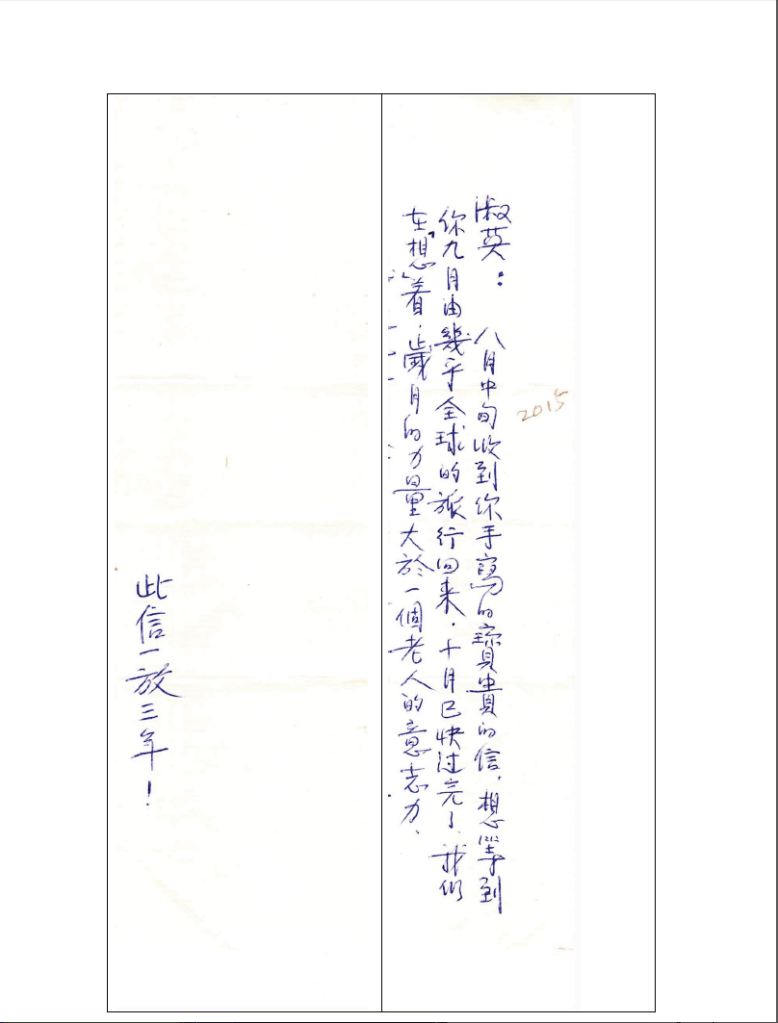 2015
淑英：　八月中旬收到你手寫的寶貴的信，想等到
你九月由幾乎全球的旅行回来，十月已快过完了，我們
在“想”着，歲月的力量大於一個老人的意志力、
此信一放三年！